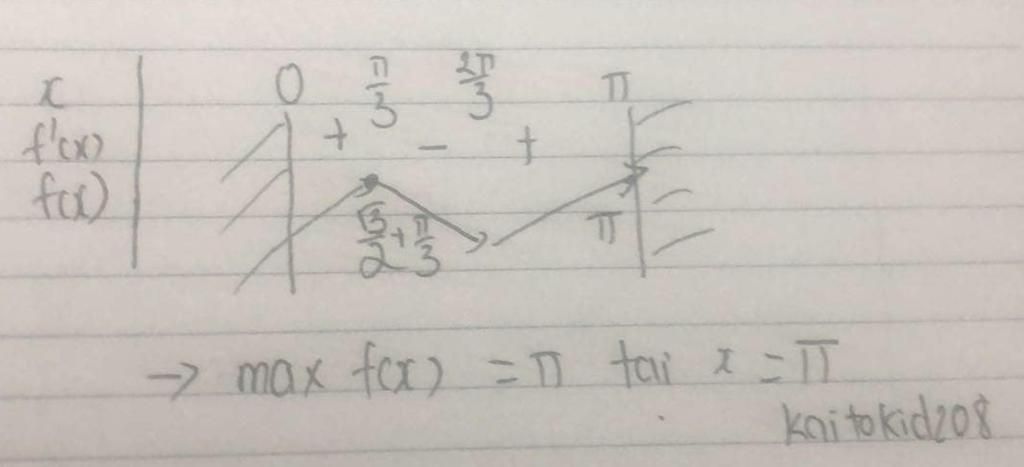 x 0 π/3 2π/3 π
f'(x) + - +
f(x) √3/2 + π/3 π
→ max f(x) = π tại x = π
kaitokid208